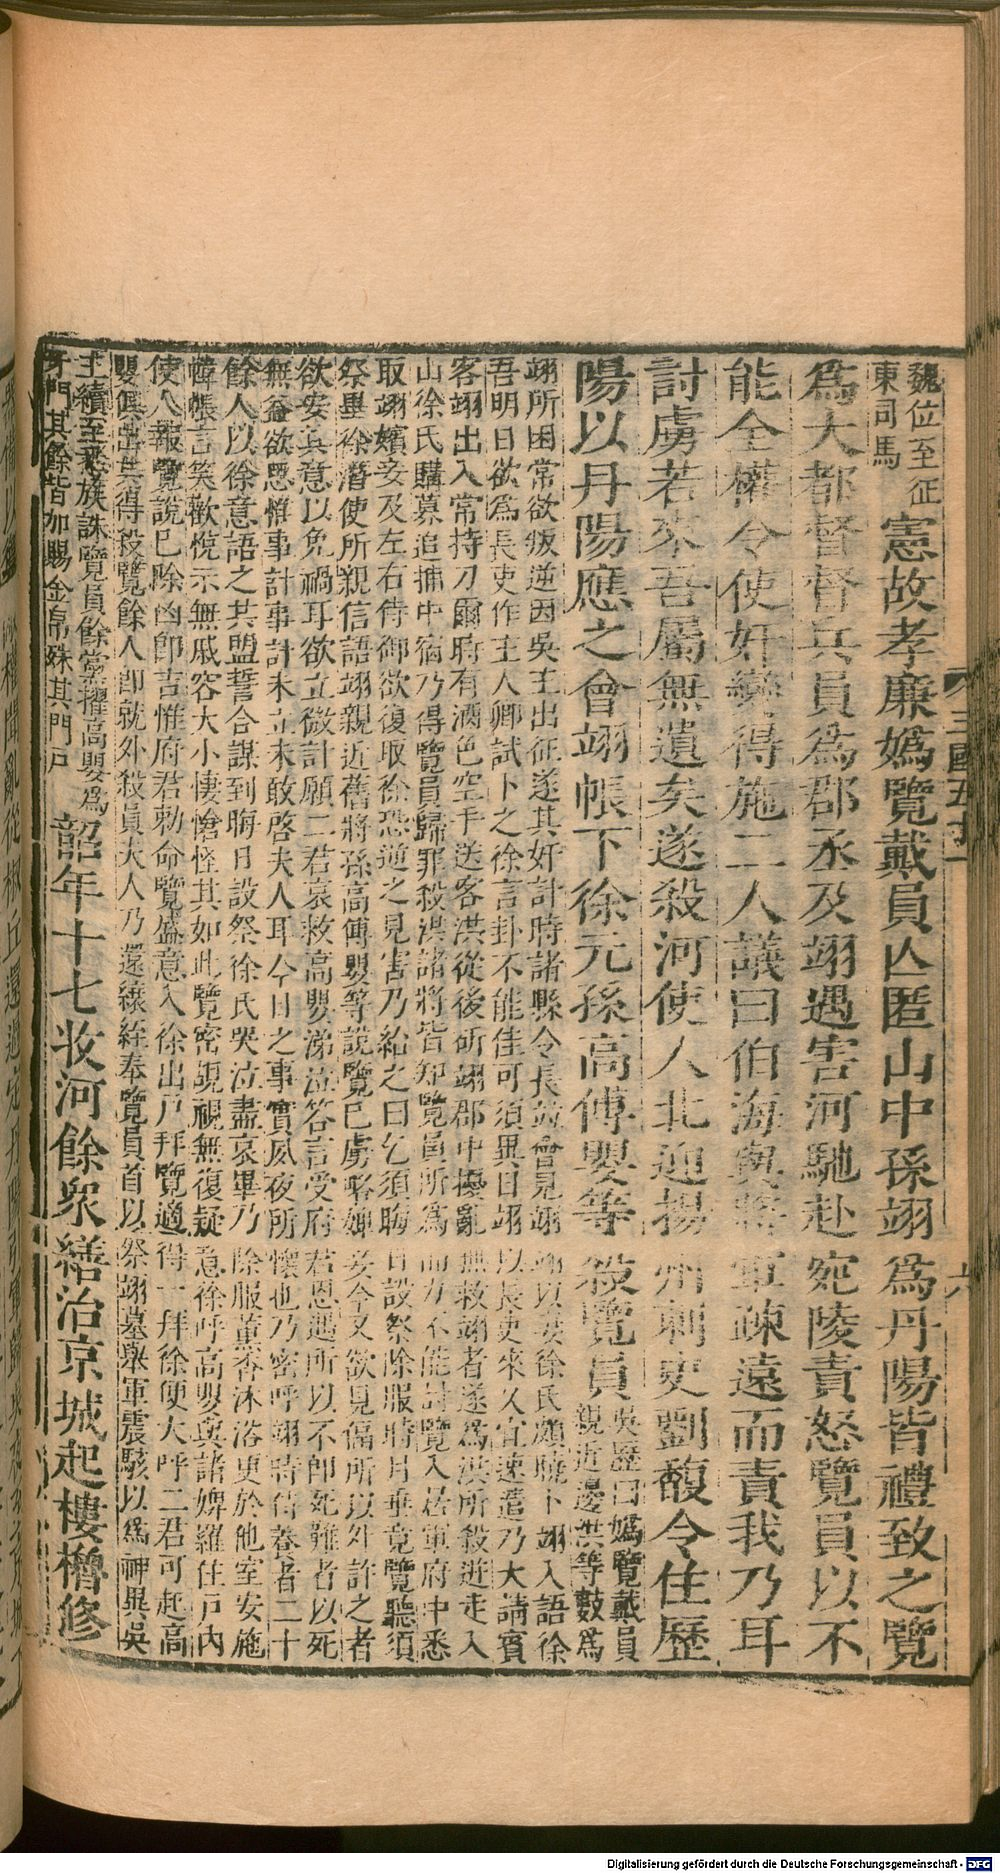 魏位至征
東司馬
憲故孝廉媯覽戴員亾匿山中孫翊爲丹陽皆禮致之覽
爲大都督督兵員爲郡丞及翊遇害河馳赴宛陵責怒覽員以不
能全權令使奸變得施二人議曰伯海與將軍疎遠而責我乃耳
討虜若來吾屬無遺矣遂殺河使人北迎揚州刺史劉馥令住歷
陽以丹陽應之會翊帳下徐元孫高傅嬰等殺覽員
吳歷曰媯覽戴員
親近邊洪等數爲
翊所困常欲叛逆因吳主出征遂其奸計時諸縣令長並會見翊翊以妻徐氏頗曉卜翊入語徐
吾明日欲爲長吏作主人卿試卜之徐言卦不能佳可須異日翊以長吏來久宜速遣乃大請賓
客翊出入常持刀爾時有酒色空手送客洪從後斫翊郡中擾亂無救翊者遂爲洪所殺迸走入
山徐氏購募追捕中宿乃得覽員歸罪殺洪諸將皆知覽員所爲而力不能討覽入居軍府中悉
取翊嬪妾及左右侍御欲復取徐恐逆之見害乃紿之曰乞須晦日設祭除服時月垂竟覽聽須
祭畢徐潛使所親信語翊親近舊將孫高傅嬰等說覽已虜略婢妾今又欲見偪所以外許之者
欲安其意以免禍耳欲立微計願二君哀救高嬰涕泣荅言受府君恩遇所以不卽死難者以死
無益欲思惟事計事計未立未敢啓夫人耳今日之事實夙夜所懷也乃密呼翊時侍養者二十
餘人以徐意語之共盟誓合謀到晦日設祭徐氏哭泣盡哀畢乃除服薰香沐浴更於他室安施
幃帳言笑歡悅示無戚容大小悽愴怪其如此覽密覘視無復疑意徐呼高嬰與諸婢羅住戶內
使人報覽說已除凶卽吉惟府君勅命覽盛意入徐出戶拜覽適得一拜徐便大呼二君可起高
嬰俱出共得殺覽餘人卽就外殺員夫人乃還縗絰奉覽員首以祭翊墓舉軍震駭以爲神異吳
主續至悉族誅覽員餘黨擢高嬰爲
牙門其餘皆加賜金帛殊其門戶
韶年十七收河餘衆繕治京城起樓櫓修
三國五十一
六
Digitalisierung gefördert durch die Deutsche Forschungsgemeinschaft - DFG